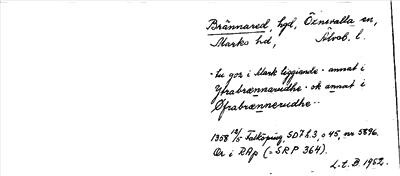 Brännared, hgd, Öxnevalla sn,
Marks hd, Älvsb. l.
"tu gozs i Mark liggiande · annat i
Ytrabrænnarudhe · ok annat i
Øfrabrænnerudhe"
1358 12/5 Falköping, SD 7 h. 3, s 45, nr 5896.
Or i RAp (= SRP 364).
L. t. B. 1952.